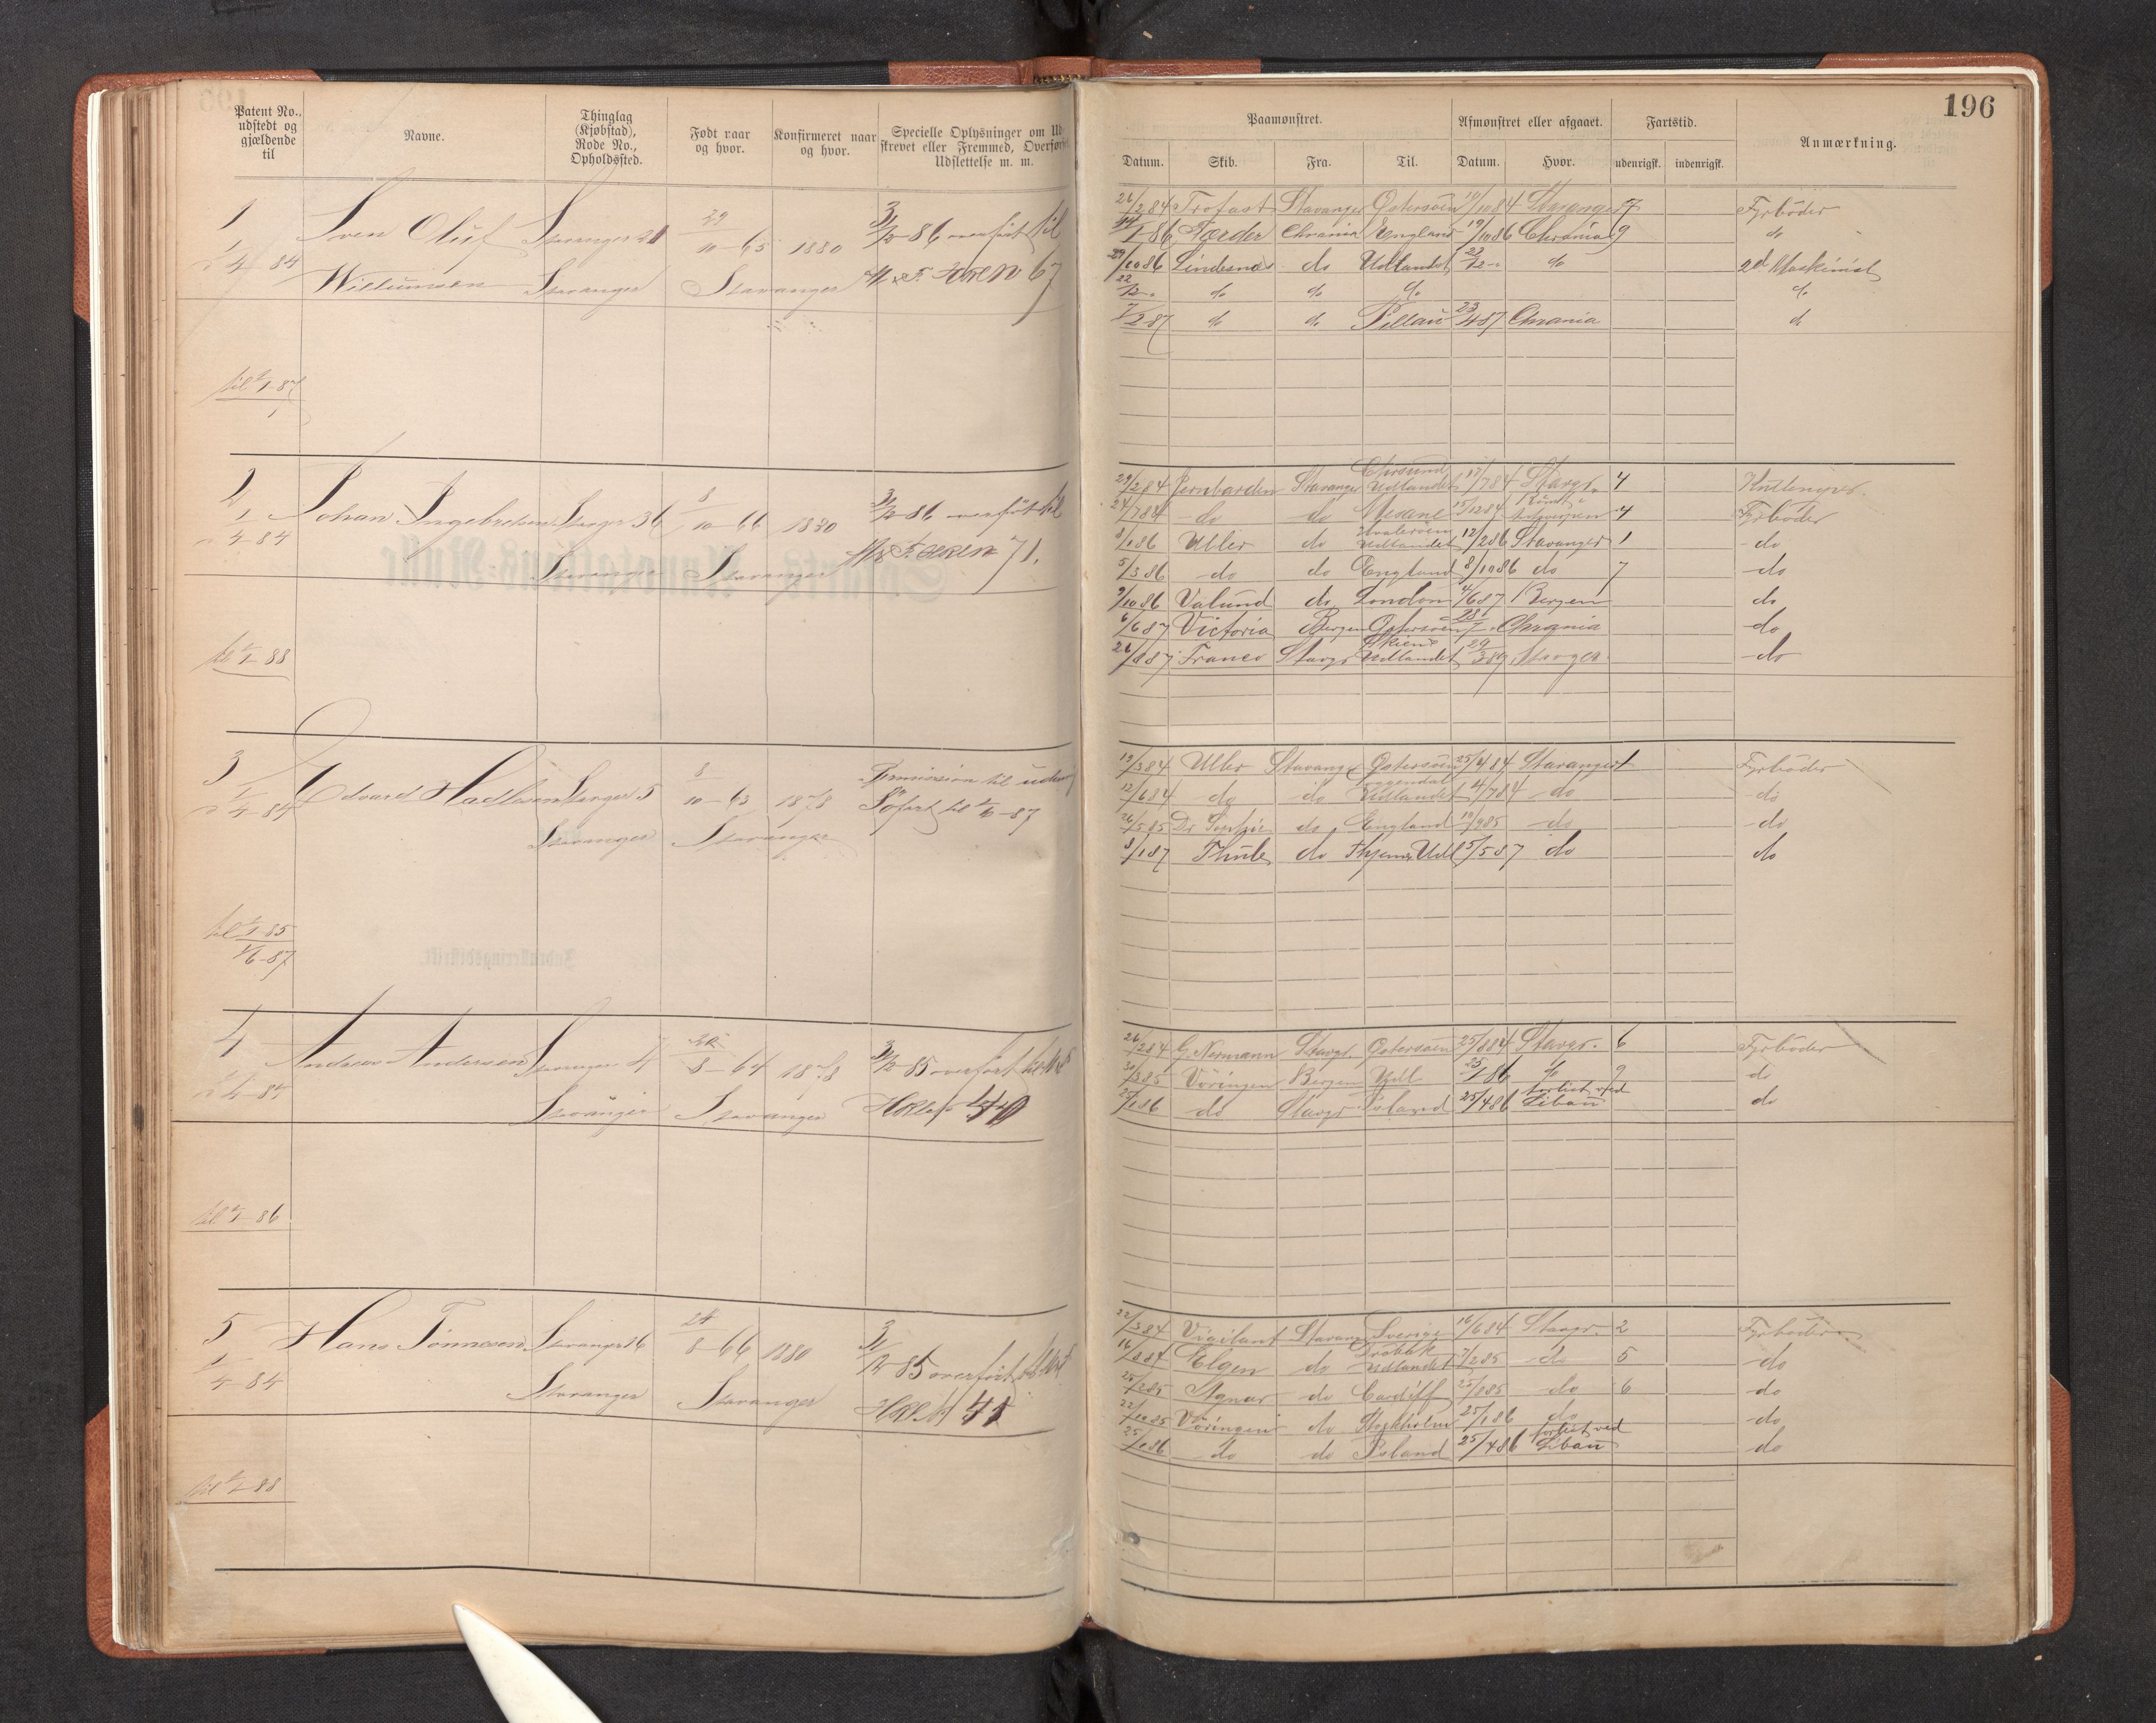 Patent No., udstedt og gjældende til
Navne.
Thinglag (Kjøbstad), Rode No., Opholdssted.
Født naar og hvor.
Konfirmeret naar og hvor.
Specielle Oplysninger om Ud-
skrevet eller Fremmed, Overført,
Udslettelse m. m.
1 Sven Oluf Stavanger 21 29/10-65 1880 31/12-86 overført til
1/4 84 Willumsen Stavanger Stavanger 67
til 1/1-87
2 Johan Ingebretsen Stavger 36 8/10-66 1880 31/12-86 overført til
1/4 84 Stavanger Stavanger 71.
til 1/1 88
3 Edvard Stavanger 5 8/10-63 1878 Permission til udenr
1/4-84 Stavanger Stavanger Søfart til 1/6-87
til 1/1-85
1/6-87
4 Andreas Andersen Stavanger 4 8-64 1878 31/12-85 overført til
1/4-84 Stavanger Stavanger 40
til 1/1 86
5 Hans Tønnesen Stavanger 16 24/8-66 1880 31/12-85 overført til
1/4-84 Stavanger Stavanger 41
til 1/1-88
196
Paamønstret.
Afmønstret eller afgaaet.
Fartstid.
Anmærkning.
Datum. Skib. Fra. Til. Datum. Hvor. udenrigsk. indenrigsk.
26/2 84 Trofast Stavanger Østersøen 19/10 84 Stavanger 7 Fyrbøder
14/1 86 Færder Chrania England 19/10 86 Chrania 9 do
29/10 86 Lindesnæs do Udlandet 22/12 do 2d Maskinist
22/12 do do do do
7/2 87 do do Pillau 23/4 87 Chrania do
29/2 84 Jernbarden Stavanger Chrsund Udlandet 17/7 84 Stavgr. 4
24/7 84 do do 15/12 84 Antwerpen 4 Fyrbøder
8/1 86 Uller do Hvaløerne Udlandet 12/2 86 Stavanger 1 do
5/3 86 do do England 8/10 86 do 7 do
9/10 86 Valund do London 4/6 87 Bergen do
6/6 87 Victoria Bergen Østersøen 28/7 Chrania do
26/8 87 Franco Stavgr Skien Udlandet 29/3 89 Stavger do
13/3 84 Uller Stavanger Østersøen 25/4 84 Stavanger 1 Fyrbøder
12/6 84 do do Soggendal Udlandet 4/7 84 do do
26/5 85 Dr Sophie do England 10/9 85 do do
8/1 87 Thule do Udl 5/5 87 do do
26/2 84 G. Nermann Stavgr. Østersøen 25/8 84 Stavgr. 6 Fyrbøder
30/3 85 Vøringen Bergen Udl 25/1 86 do 9 do
25/1 86 do Stavgr Island 25/4 86 forlist ved Libau do
22/3 84 Vigilant Stavanger Sverige 16/6 84 Stavgr. 2 Fyrbøder
16/8 84 Elgen do Drøbak Udlandet 7/2 85 do 5 do
25/2 85 Agnar do Cardiff 25/8 85 do 6 do
22/10 85 Vøringen do Stockholm 25/1 86 do do
25/1 86 do do Island 25/4 86 forlist ved Libau do